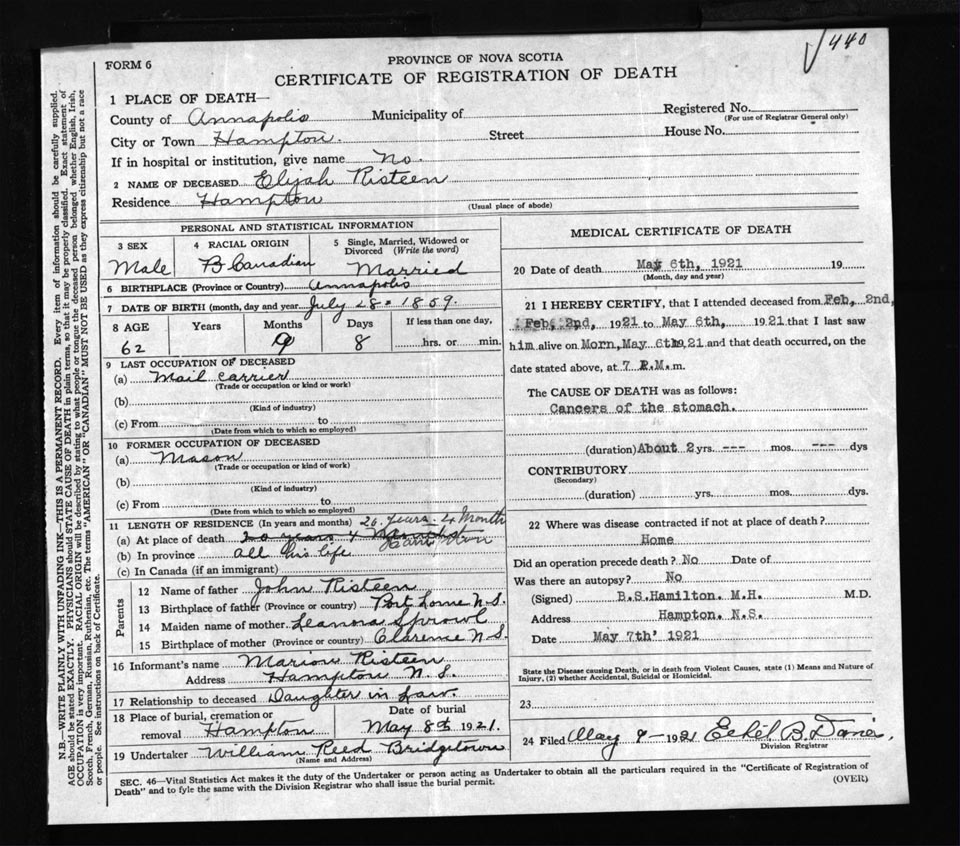 440
FORM 6
PROVINCE OF NOVA SCOTIA
CERTIFICATE OF REGISTRATION OF DEATH
1 PLACE OF DEATH—
County of Annapolis Municipality of Registered No.
(For use of Registrar General only)
City or Town Hampton. Street House No.
If in hospital or institution, give name No.
2 NAME OF DECEASED Elijah Risteen
Residence Hampton
(Usual place of abode)
PERSONAL AND STATISTICAL INFORMATION
3 SEX 4 RACIAL ORIGIN 5 Single, Married, Widowed or Divorced (Write the word)
Male B Canadian Married
6 BIRTHPLACE (Province or Country) Annapolis
7 DATE OF BIRTH (month, day and year) July 28 - 1859.
8 AGE Years Months Days If less than one day,
62 9 8 hrs. or min.
9 LAST OCCUPATION OF DECEASED
(a) Mail carrier
(Trade or occupation or kind or work)
(b)
(Kind of industry)
(c) From to
(Date from which to which so employed)
10 FORMER OCCUPATION OF DECEASED
(a) Mason
(Trade or occupation or kind of work)
(b)
(Kind of industry)
(c) From to
(Date from which to which so employed)
11 LENGTH OF RESIDENCE (In years and months) 26 years - 4 Month
(a) At place of death 20 years 4 Hampton
(b) In province all his life
(c) In Canada (if an immigrant)
Parents
12 Name of father John Risteen
13 Birthplace of father (Province or country) Port Lorne N.S.
14 Maiden name of mother Leanna Sprowl
15 Birthplace of mother (Province or country) Clarence N S.
16 Informant's name Marion Risteen
Address Hampton N. S.
17 Relationship to deceased Daughter in law.
18 Place of burial, cremation or removal Hampton Date of burial May 8th 1921.
19 Undertaker William Reed Bridgetown
(Name and Address)
MEDICAL CERTIFICATE OF DEATH
20 Date of death May 6th, 1921 19
(Month, day and year)
21 I HEREBY CERTIFY, that I attended deceased from Feb, 2nd,
Feb, 2nd, 1921 to May 6th, 1921 that I last saw
him alive on Morn, May 6th 1921 and that death occurred, on the
date stated above, at 7 P.M. m.
The CAUSE OF DEATH was as follows:
Cancers of the stomach.
(duration) About 2 yrs. --- mos. --- dys
CONTRIBUTORY
(Secondary)
(duration) yrs. mos. dys.
22 Where was disease contracted if not at place of death?
Home
Did an operation precede death? No Date of
Was there an autopsy? No
(Signed) B.S.Hamilton. M.H. M.D.
Address Hampton. N.S.
Date May 7th' 1921
State the Disease causing Death, or in death from Violent Causes, state (1) Means and Nature of
Injury, (2) whether Accidental, Suicidal or Homicidal.
23
24 Filed May 9 - 1921 Ethel B.
Division Registrar
SEC. 46—Vital Statistics Act makes it the duty of the Undertaker or person acting as Undertaker to obtain all the particulars required in the "Certificate of Registration of
Death" and to fyle the same with the Division Registrar who shall issue the burial permit.
(OVER)
N.B.—WRITE PLAINLY WITH UNFADING INK—THIS IS A PERMANENT RECORD. Every item of information should be carefully supplied.
AGE should be stated EXACTLY. PHYSICIANS should STATE CAUSE OF DEATH in plain terms, so that it may be properly classified. Exact statement of
OCCUPATION is very important. RACIAL ORIGIN will be described by stating to what people or tongue the deceased person belonged whether English, Irish,
Scotch, French, German, Russian, Ruthenian, etc. The terms "AMERICAN" OR "CANADIAN" MUST NOT BE USED as they express citizenship but not a race
or people. See instructions on back of Certificate.